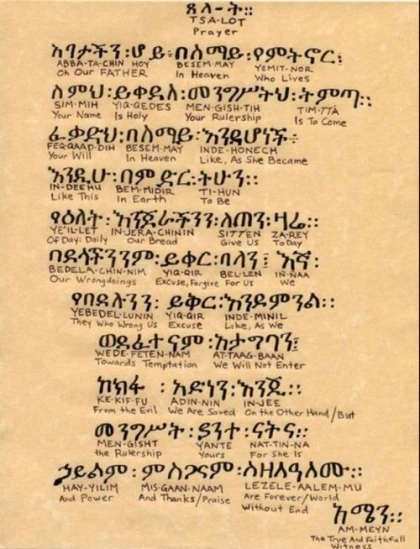 ጸሎት፡፡
TSA-LOT
Prayer
አባታችን፡ሆይ፡በሰማይ፡የምትኖር፡
ABBA-TA-CHIN HOY BESEM-MAY YEMIT-NOR
Oh Our FATHER In Heaven Who Lives
ስምህ፡ይቀደስ፡መንግሥትህ፡ትምጣ፡፡
SIM-MIH YIQ-QEDES MEN-GISH-TIH TIM-TTA
Your Name Is Holy Your Rulership Is To Come
ፈቃድህ፡በሰማይ፡እንደሆነች፡
FEQ-QAAD-DIH BESEM-MAY INDE-HONECH
Your Will In Heaven Like, As She Became
እንዲሁ፡በምድር፡ትሁን፡፡
IN-DEEHU BEM-MIDIR TI-HUN
Like This In Earth To Be
የዕለት፡እንጀራችንን፡ስጠን፡ዛሬ፡፡
YE'IL-LET IN-JERA-CHININ SITTEN ZA-REY
Of Day: Daily Our Bread Give Us Today
በደላችንንም፡ይቅር፡በለን፤ እኛ፡
BEDELA-CHIN-NIM YIQ-QIR BEL-LEN IN-NAA
Our Wrongdoings Excuse, Forgive For Us We
የበደሉንን፡ ይቅር፡እንደምንል፡፡
YEBEDEL-LUNIN YIQ-QIR INDE-MINIL
They Who Wrong Us Excuse Like, As We
ወደፈተናም፡አታግባን፤
WEDE-FETEN-NAM AT-TAAG-BAAN
Towards Temptation We Will Not Enter
ከክፉ ፡ አድነን፡እንጂ፡፡
KE-KIF-FU ADIN-NIN IN-JEE
From the Evil We Are Saved On the Other Hand/But
መንግሥት፡ያንተ፡ናትና፡
MEN-GISHT YANTE NAT-TIN-NA
the Rulership Yours For She Is
ኃይልም፡ምስጋናም፡ስለዘለዓለሙ፡፡
HAY-YILIM MIS-GAAN-NAAM LEZELE-AALEM-MU
And Power And Thanks/Praise Are Forever/World
Without End
አሜን፡፡
AM-MEYN
The True And Faithfull
Witness